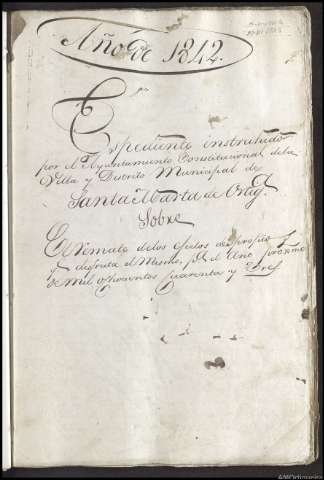 Año de 1842.
Expediente instruhido
por el Ayuntamiento Constitucional dela
Villa y Distrito Municipal de
Santa Marta de Ortig.ª
Sobre
El Remate delos efectos de propios q.
disfruta el Mismo, p.ª el Año proximo
de mil ochocientos quarenta y tres